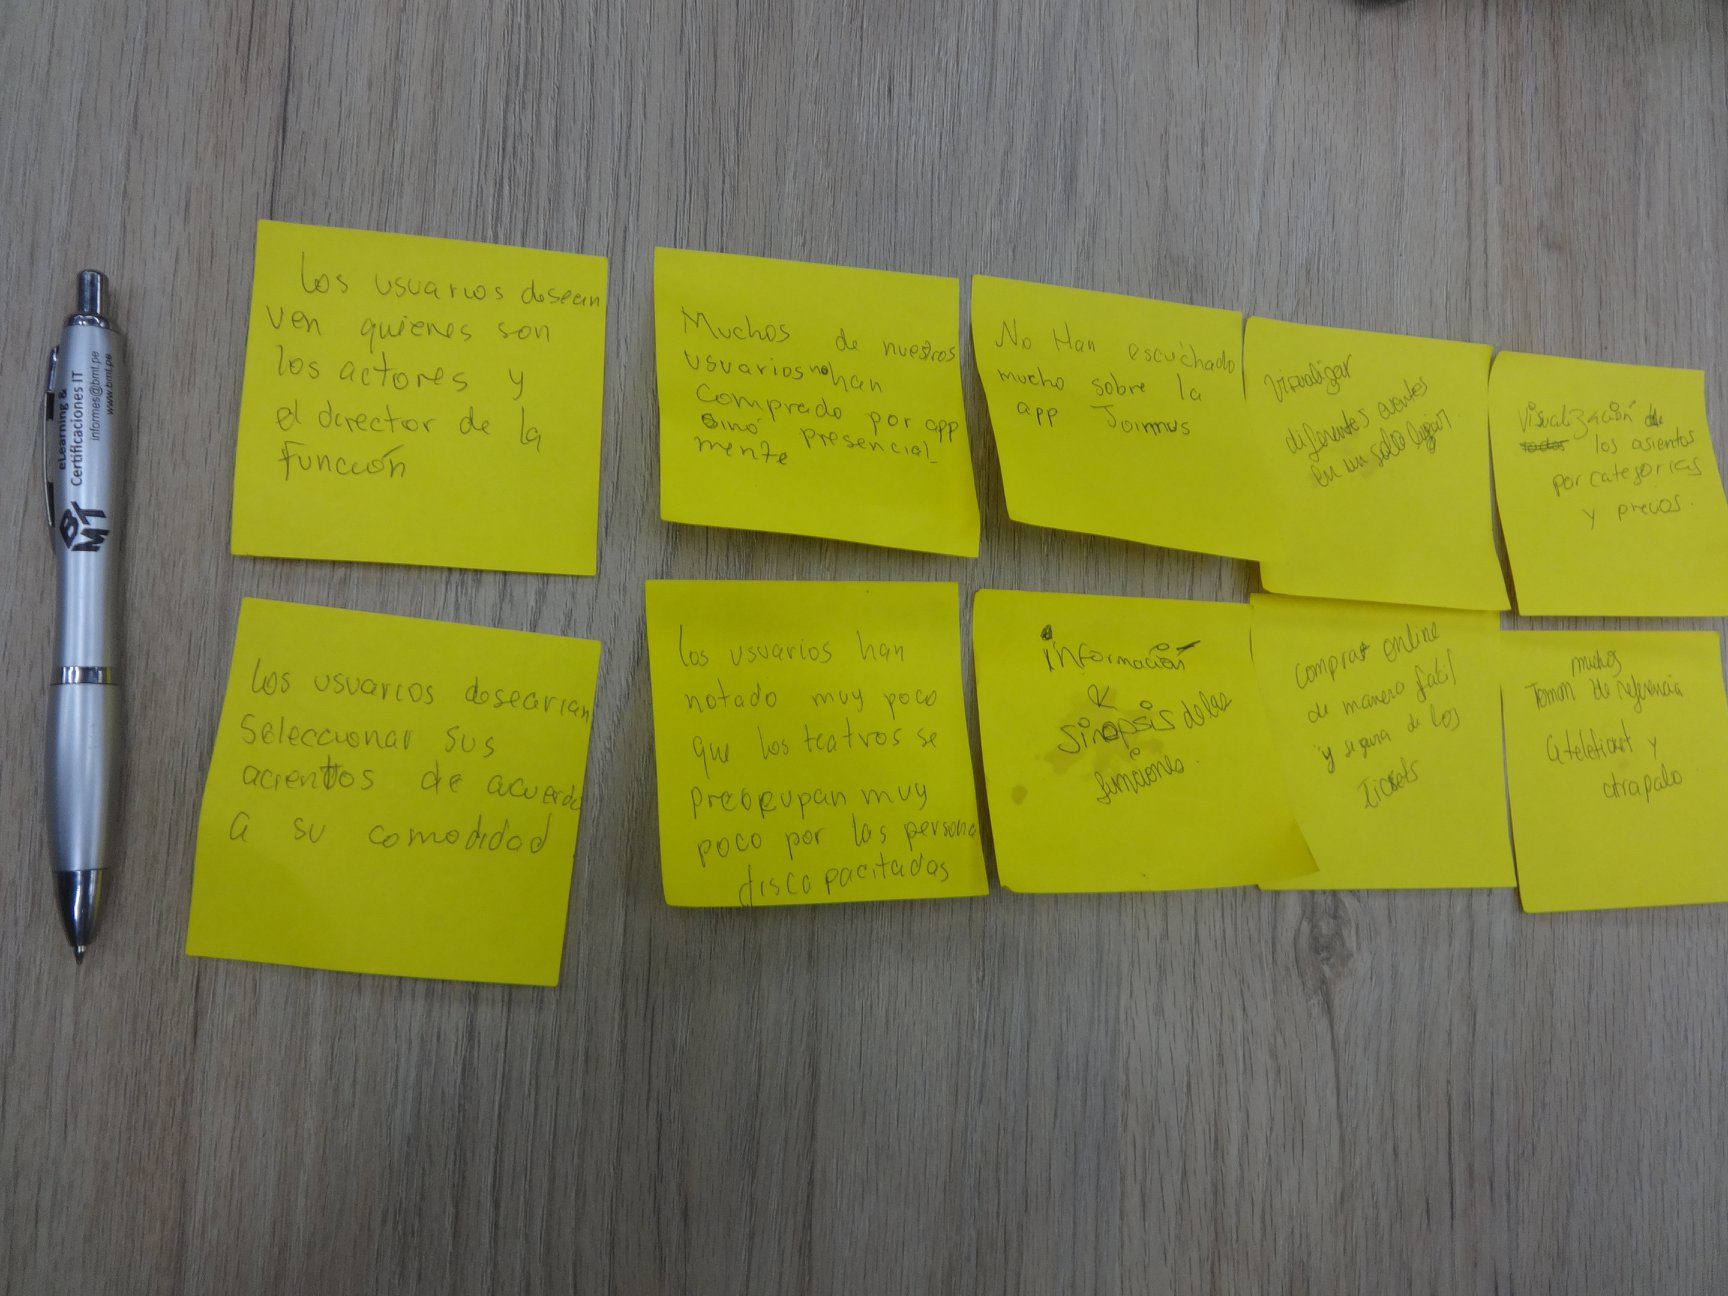 BMT
eLearning &
Certificaciones IT
informes@bmt.pe
www.bmt.pe
Los usuarios desean
ven quienes son
los actores y
el director de la
Función
Muchos de nuestros
usuarios no han
comprado por app
sinó presencial-
mente
No Han escuchado
mucho sobre la
app Joinnus
Visualizar
diferentes eventos
en un solo lugar.
Visualización de
los asientos
por categorias
y precios.
Los usuarios desearian
seleccionar sus
acientos de acuerdo
a su comodidad
Los usuarios han
notado muy poco
que los teatros se
preocupan muy
poco por las persona
discapacitadas
información
y
sinopsis de las
funciones.
comprar online
de manera facil
y segura de los
Tickets
muchos
Toman de referencia
a teleticket y
atrapalo